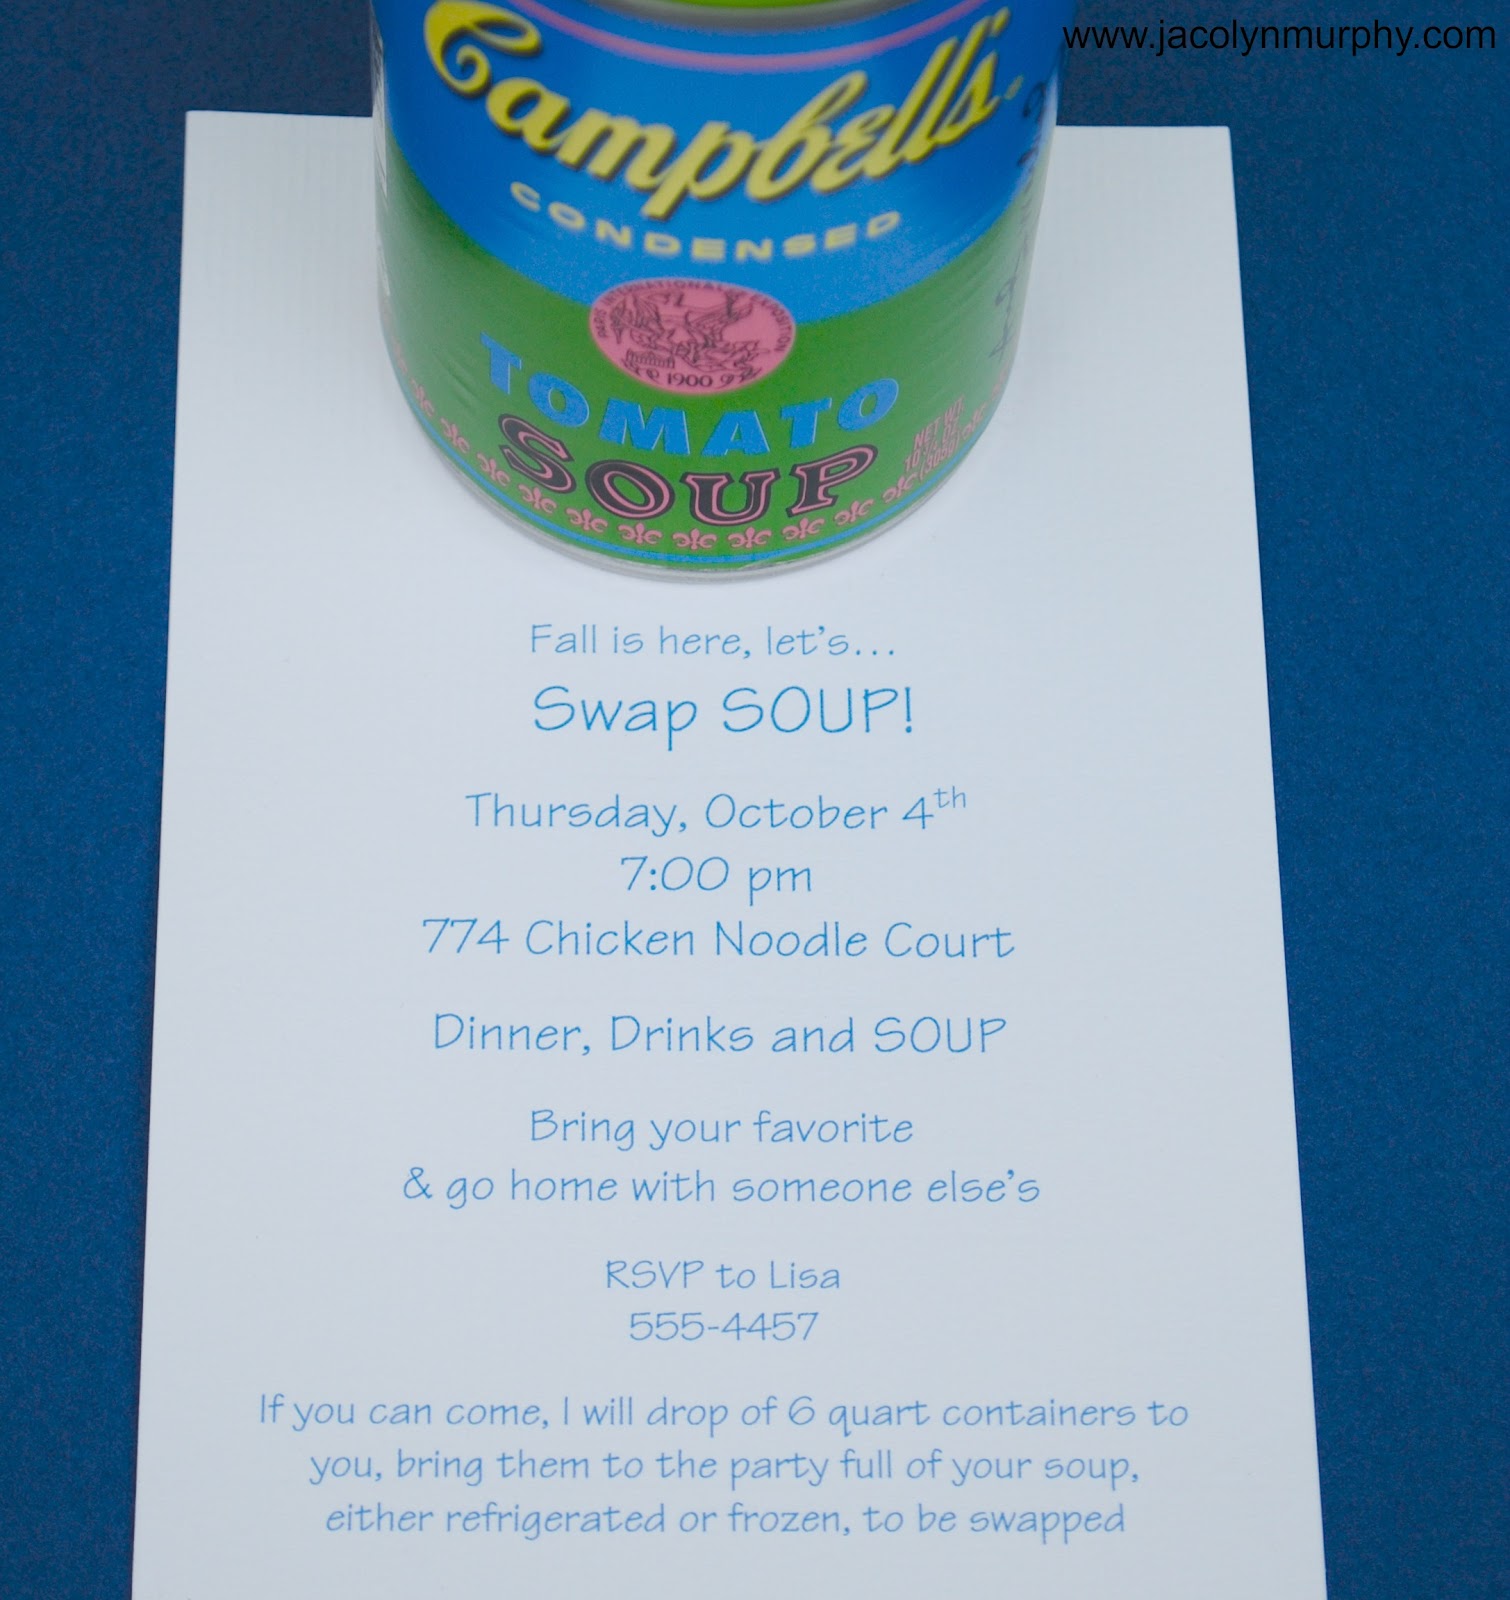 www.jacolynmurphy.com
Campbell's
CONDENSED
PARIS INTERNATIONAL EXPOSITION
1900
TOMATO
SOUP
NET WT.
10 ¾ OZ.
(305g)
Fall is here, let's...
Swap SOUP!
Thursday, October 4th
7:00 pm
774 Chicken Noodle Court
Dinner, Drinks and SOUP
Bring your favorite
& go home with someone else's
RSVP to Lisa
555-4457
If you can come, I will drop of 6 quart containers to
you, bring them to the party full of your soup,
either refrigerated or frozen, to be swapped